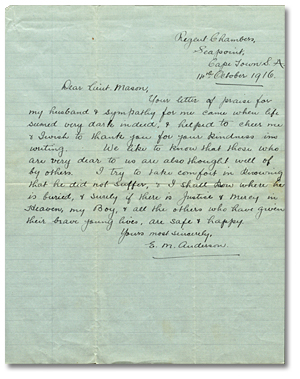 Regent Chambers,
Seapoint,
Cape Town S.A.
10th October 1916.
Dear Lieut. Mason,
Your letter of praise for
my husband & sympathy for me came when life
seemed very dark indeed, & helped to cheer me
& I wish to thank you for your kindness in
writing. We like to know that those who
are very dear to us are also thought well of
by others. I try to take comfort in knowing
that he did not suffer, & I shall know where he
is buried, & surely if there is Justice & Mercy in
Heaven, my Boy, & all the others who have given
their brave young lives, are safe & happy.
Yours most sincerely,
E. M. Anderson.